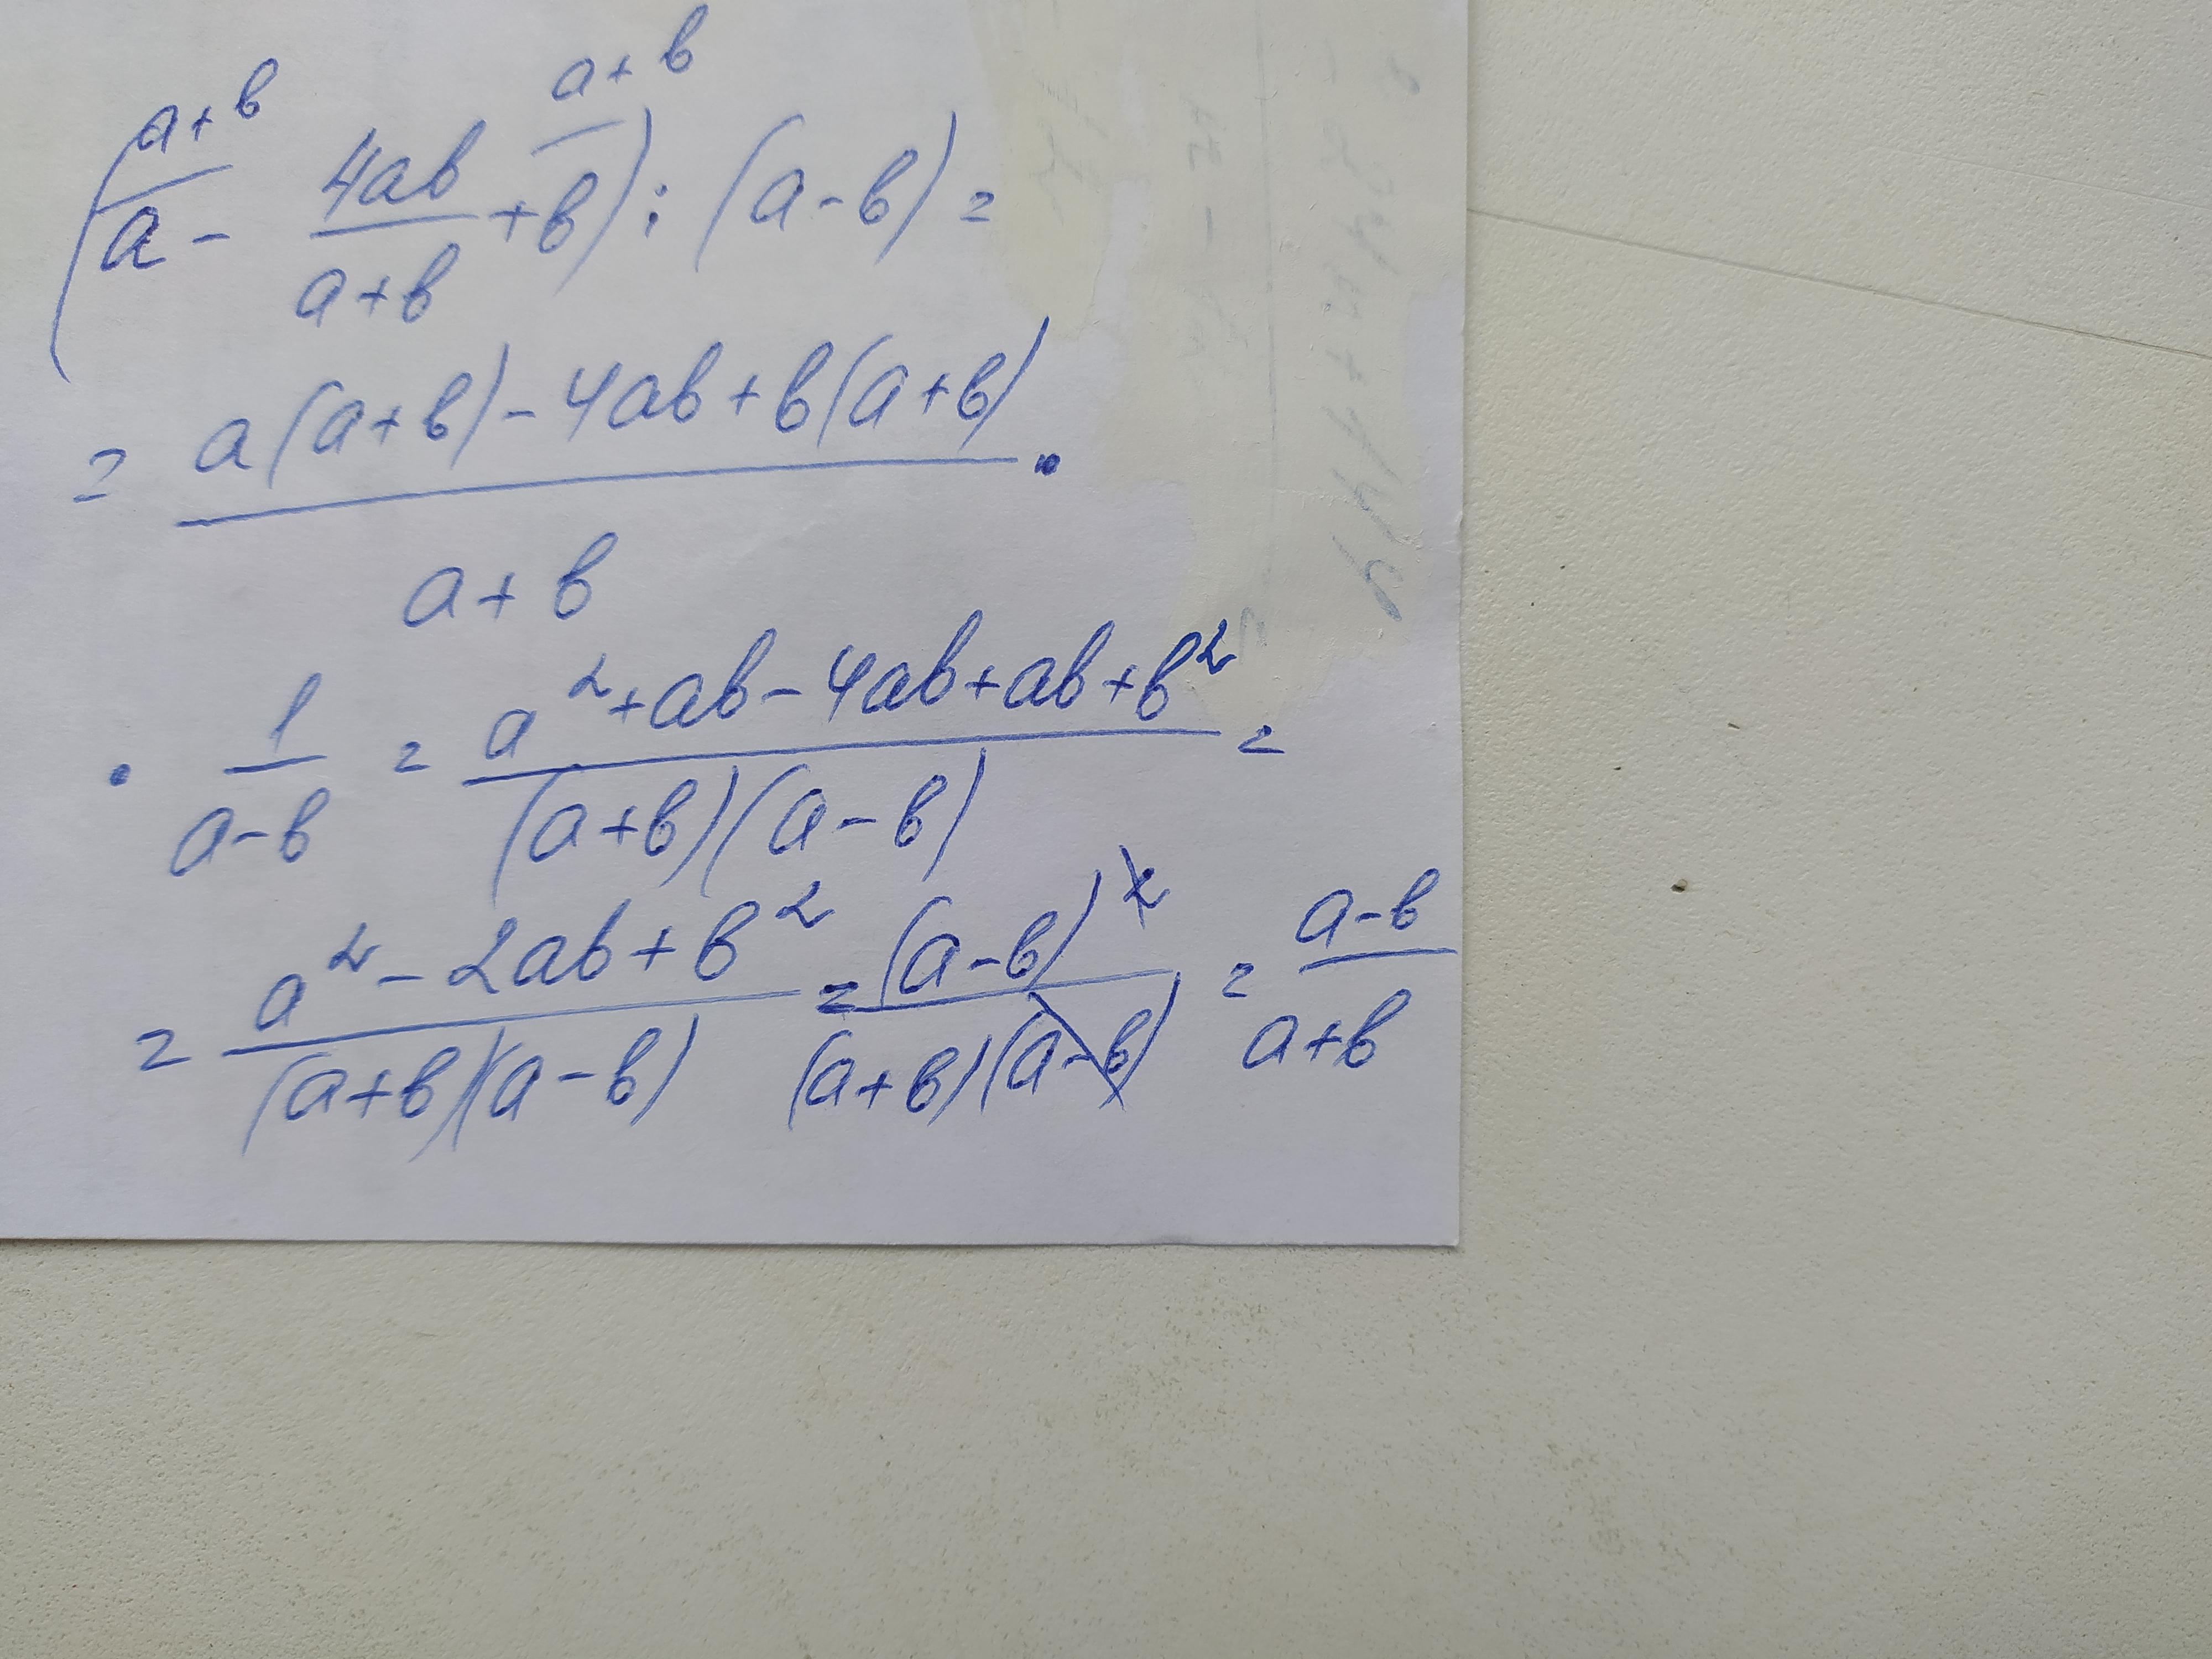 a+b a+b
(a - 4ab/(a+b) + b) : (a-b) =
= (a(a+b) - 4ab + b(a+b))/(a+b) ·
· 1/(a-b) = (a² + ab - 4ab + ab + b²)/((a+b)(a-b)) =
= (a² - 2ab + b²)/((a+b)(a-b)) = (a-b)²/((a+b)(a-b)) = (a-b)/(a+b)